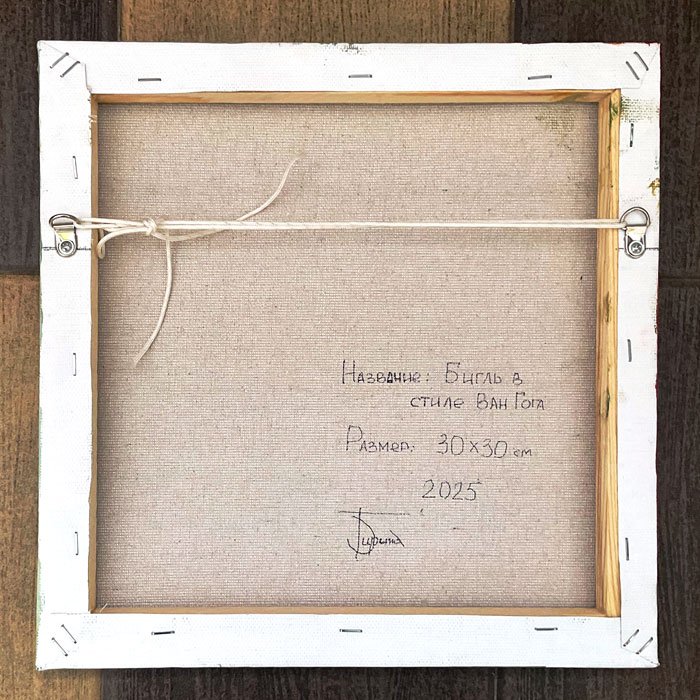 Название: Бигль в
стиле Ван Гога
Размер: 30х30 см
2025